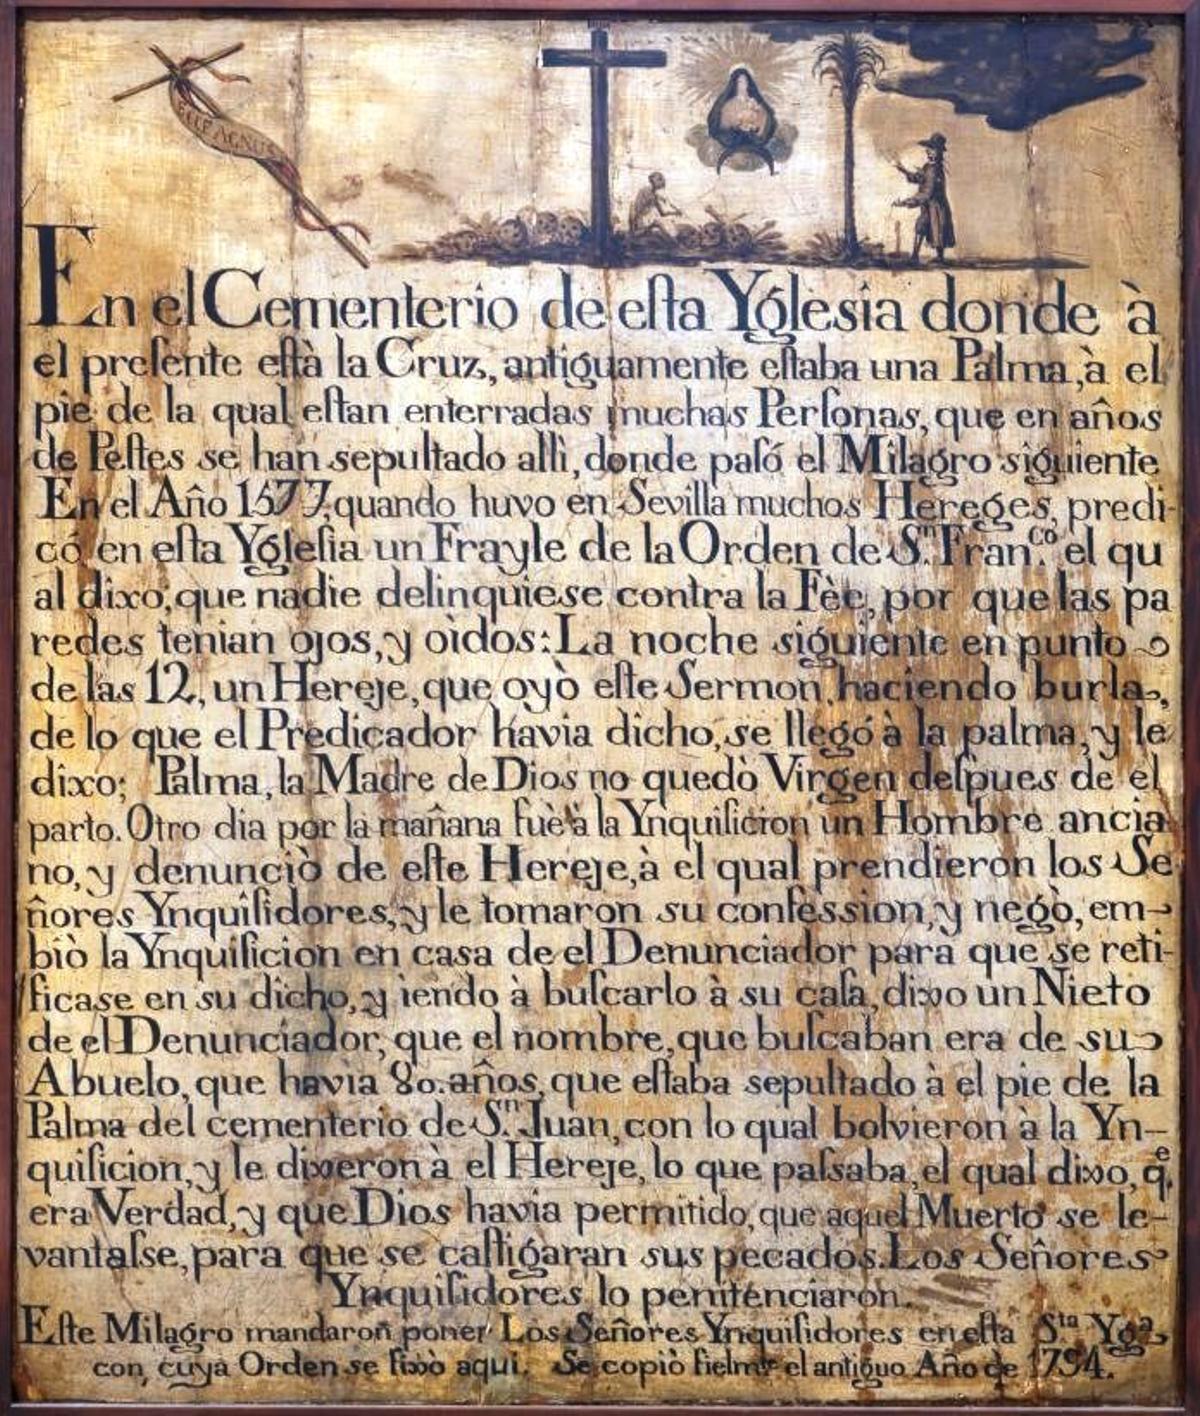 ECCE AGNUS
En el Cementerio de eſta Yglesia donde à
el preſente eſtà la Cruz, antiguamente eſtaba una Palma, à el
pie de la qual eſtan enterradas muchas Perſonas, que en años
de Peſtes se han sepultado allì, donde paſó el Milagro siguiente
En el Año 1577, quando huvo en Sevilla muchos Hereges, predi-
có en eſta Ygleſia un Frayle de la Orden de S.n Fran.co el qu
al dixo, que nadie delinquiese contra la Fèe, por que las pa
redes tenian ojos, y oìdos: La noche siguiente en punto
de las 12, un Hereje, que oyò eſte Sermon, haciendo burla,
de lo que el Predicador havia dicho, se llegó à la palma, y le
dixo; Palma, la Madre de Dios no quedò Virgen deſpues de el
parto. Otro dia por la mañana fuè à la Ynquiſicion un Hombre ancia
no, y denunciò de eſte Hereje, à el qual prendieron los Se
ñores Ynquiſidores, y le tomaron su confession, y negò, em-
biò la Ynquiſicion en casa de el Denunciador para que se reti-
ficase en su dicho, y iendo à buſcarlo à su caſa, dixo un Nieto
de el Denunciador, que el nombre, que buſcaban era de su
Abuelo, que havia 80. años, que eſtaba sepultado à el pie de la
Palma del cementerio de S.n Juan, con lo qual bolvieron à la Yn-
quiſicion, y le dixeron à el Hereje, lo que paſsaba, el qual dixo, q.e
era Verdad, y que Dios havia permitido, que aquel Muerto se le-
vantaſse, para que se caſtigaran sus pecados. Los Señores
Ynquiſidores lo penitenciaron.
Eſte Milagro mandaron poner Los Señores Ynquiſidores en eſta S.ta Yg.a
con cuya Orden se fixò aqui. Se copiò fielm.te el antiguo Año de 1794.